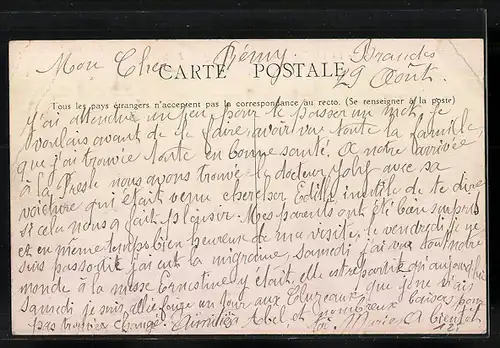 Mon Cher Rémy. Brandes
CARTE POSTALE 29 Août.
Tous les pays étrangers n'acceptent pas la correspondance au recto. (Se renseigner à la poste)
j'ai attendu un peu pour te passer un mot, je
voulais avant de te faire, avoir vue toute la famille,
que j'ai trouvée toute en bonne santé. A notre arrivée
à la Presle nous avons trouvé le docteur Joly avec sa
voiture qui était venu chercher Edith, inutile de te dire
si cela nous a fait plaisir. Mes parents ont été bien surpris
et en même temps bien heureux de ma visite. le vendredi je ne
suis pas sortie j'ai eut la migraine, samedi j'ai vu tout notre
monde à la messe Ernestine y était, elle est repartie qu'aujourd'hui
samedi je suis allée faire un tour aux Cluzeaux que je ne vais
pas trouver changé. Amitiés à Abel, et nombreux baisers pour
toi Marie A bientôt